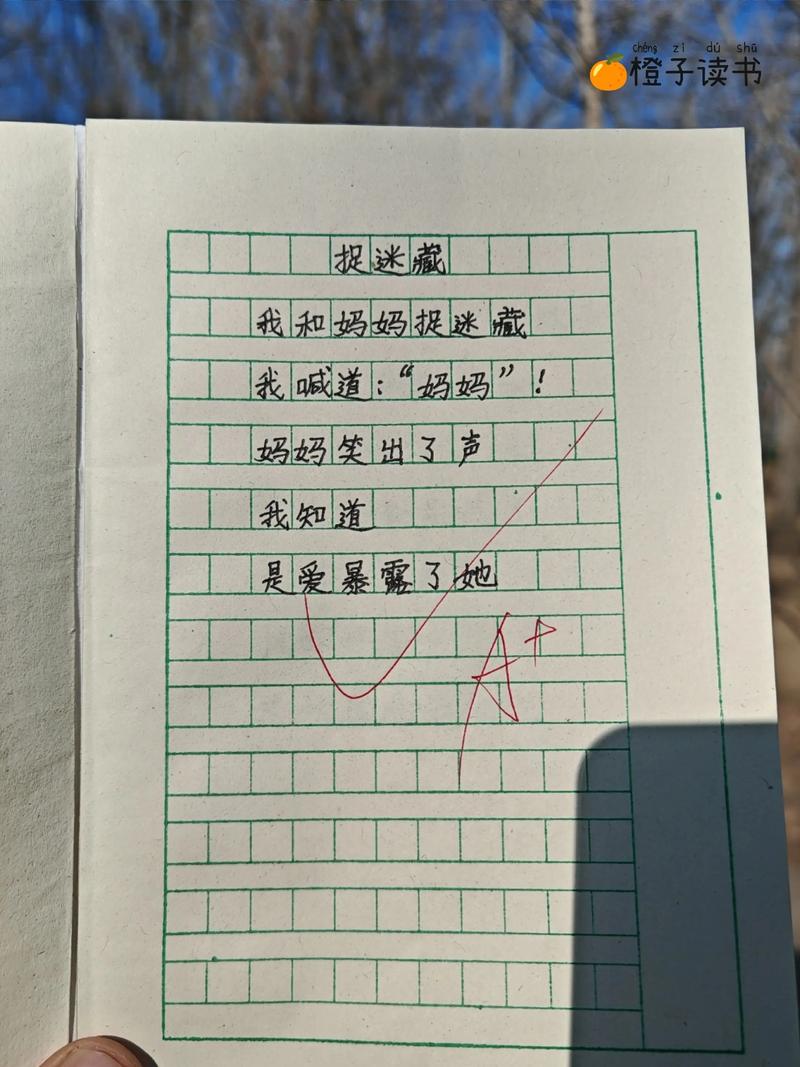 chéng zi dú shū
橙子读书
捉迷藏
我和妈妈捉迷藏
我喊道：“妈妈”！
妈妈笑出了声
我知道
是爱暴露了她
A+